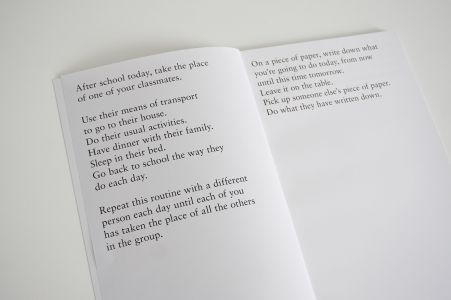 After school today, take the place
of one of your classmates.
Use their means of transport
to go to their house.
Do their usual activities.
Have dinner with their family.
Sleep in their bed.
Go back to school the way they
do each day.
Repeat this routine with a different
person each day until each of you
has taken the place of all the others
in the group.
On a piece of paper, write down what
you're going to do today, from now
until this time tomorrow.
Leave it on the table.
Pick up someone else's piece of paper.
Do what they have written down.